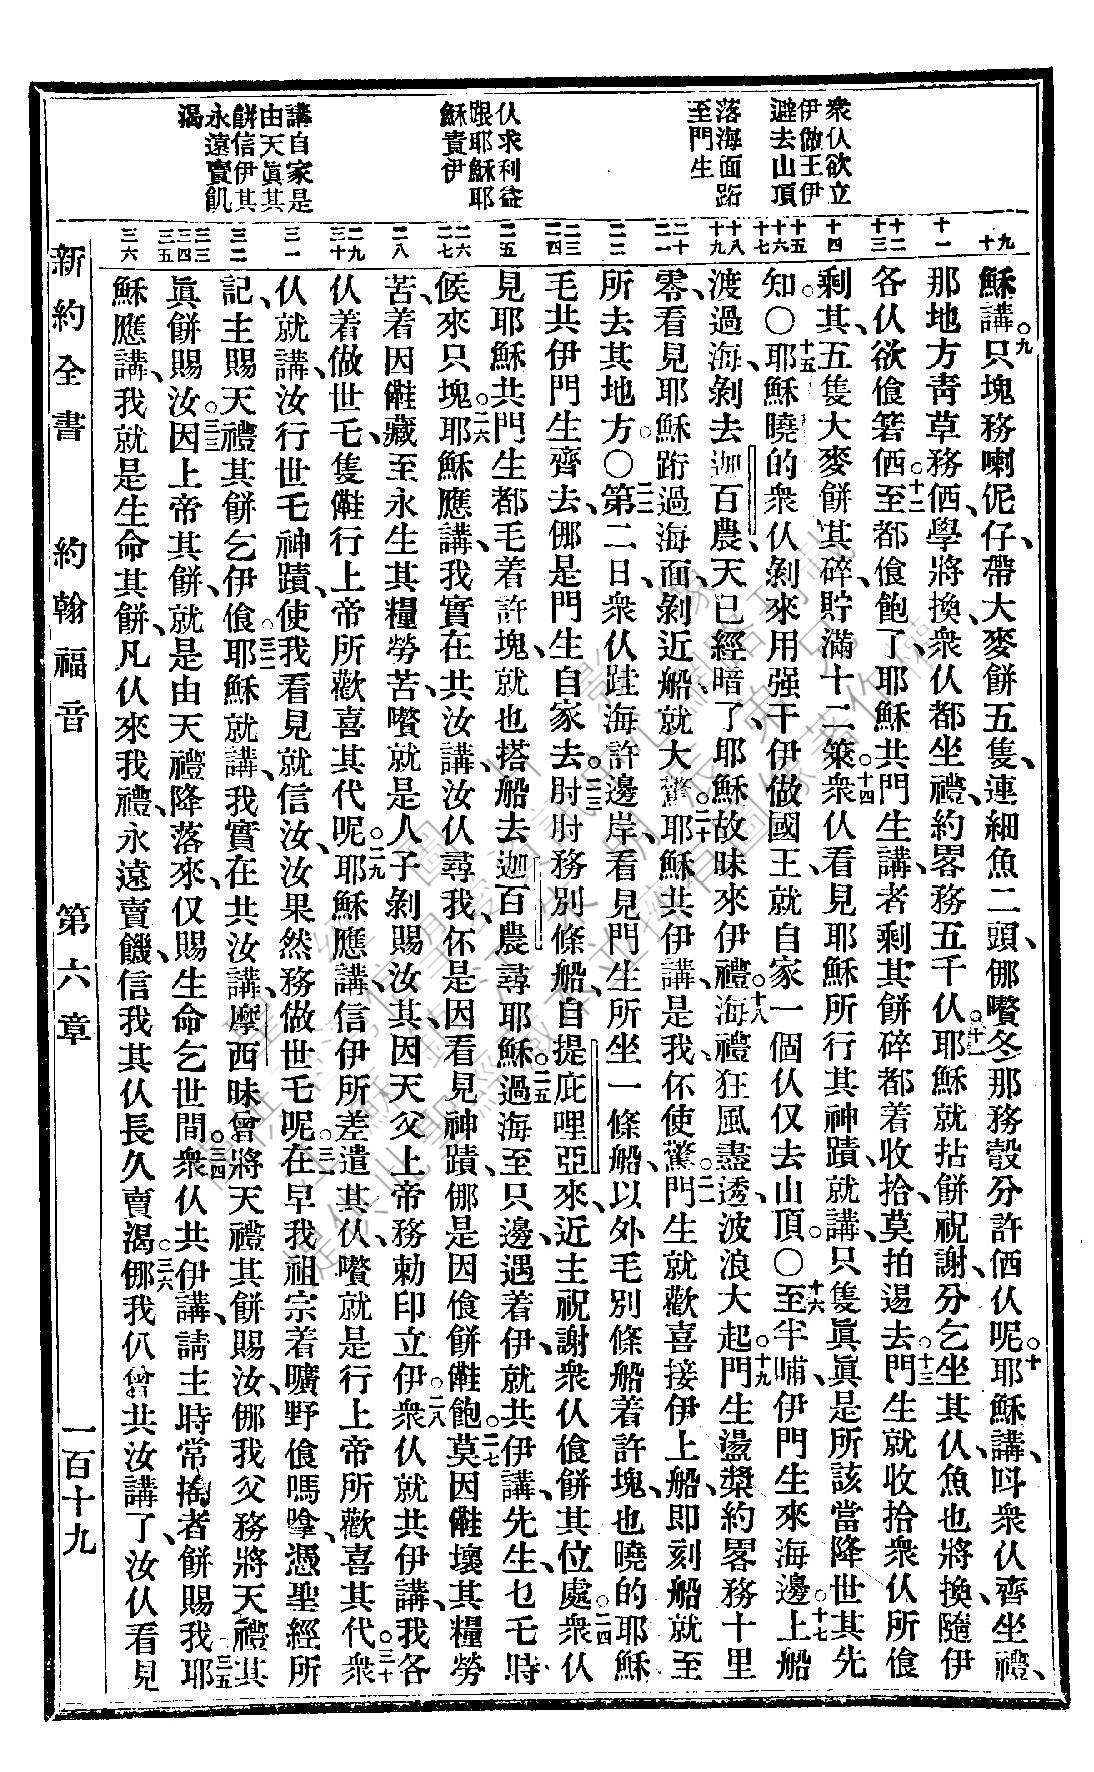 衆仫欲立
伊做王伊
避去山頂
落海面跨
至門生
仫求利益
跟耶穌耶
穌責伊
講自家是
由天眞其
餅信伊其
永遠賣飢
渴
九
十
十一
十二
十三
十四
十五
十六
十七
十八
十九
二十
二一
二二
二三
二四
二五
二六
二七
二八
二九
三十
三一
三二
三三
三四
三五
三六
穌講。九只塊務喇伲仔、帶大麥餅五隻、連細魚二頭、倻嚽冬那務彀分許価仫呢。十耶穌講、呌衆仫齊坐禮、
那地方靑草務価學將換、衆仫都坐禮、約畧務五千仫、十一耶穌就拈餅祝謝、分乞坐其仫、魚也將換隨伊
各仫欲飡箬価。十二至都飡飽了、耶穌共門生講、者剩其餅碎都着收拾、莫拍逿去。十三門生就收拾衆仫所飡
剩其、五隻大麥餅其碎、貯滿十二籃。十四衆仫看見耶穌所行其神蹟、就講、只隻眞眞是所該當降世其先
知。〇十五耶穌曉的衆仫剝來用强干伊做國王、就自家一個仫仅去山頂。〇十六至半晡伊門生來海邊上船、
渡過海、剝去迦百農、天已經暗了、耶穌故昧來伊禮。十八海禮狂風盡透、波浪大起。十九門生盪槳約畧務十里
零、看見耶穌跨過海面、剝近船、就大驚。二十耶穌共伊講、是我、伓使驚。二一門生就歡喜接伊上船、卽刻船就至
所去其地方。〇二二第二日、衆仫跬海許邊岸、看見門生所坐一條船、以外毛別條船着許塊、也曉的耶穌
毛共伊門生齊去、倻是門生自家去。二三肘肘務別條船、自提庇哩亞來、近主祝謝衆仫飡餅其位處。二四衆仫
見耶穌共門生都毛着許塊、就也搭船去迦百農尋耶穌。二五過海至只邊、遇着伊、就共伊講、先生乜乇時
候來只塊。二六耶穌應講、我實在共汝講、汝仫尋我、伓是因看見神蹟、倻是因飡餅𣍐飽。二七莫因𣍐壞其糧勞
苦、着因𣍐藏至永生其糧勞苦、嚽就是人子剝賜汝其、因天父上帝務勅印立伊。二八衆仫就共伊講、我各
仫着做世乇隻𣍐行上帝所歡喜其代呢。二九耶穌應講、信伊所差遣其仫、嚽就是行上帝所歡喜其代。三十衆
仫就講、汝行世乇神蹟、使我看見就信汝、汝果然務做世乇呢。三一在早我祖宗着曠野飡嗎嗱、憑聖經所
記、主賜天禮其餅乞伊飡。三二耶穌就講、我實在共汝講、摩西昧曾將天禮其餅賜汝、倻我父務將天禮其
眞餅賜汝。三三因上帝其餅、就是由天禮降落來、仅賜生命乞世間。三四衆仫共伊講、請主時常搦者餅賜我。三五耶
穌應講、我就是生命其餅、凡仫來我禮、永遠賣饑、信我其仫長久賣渴。三六倻我仈曾共汝講了、汝仫看見
新約全書　約翰福音　第六章　一百十九